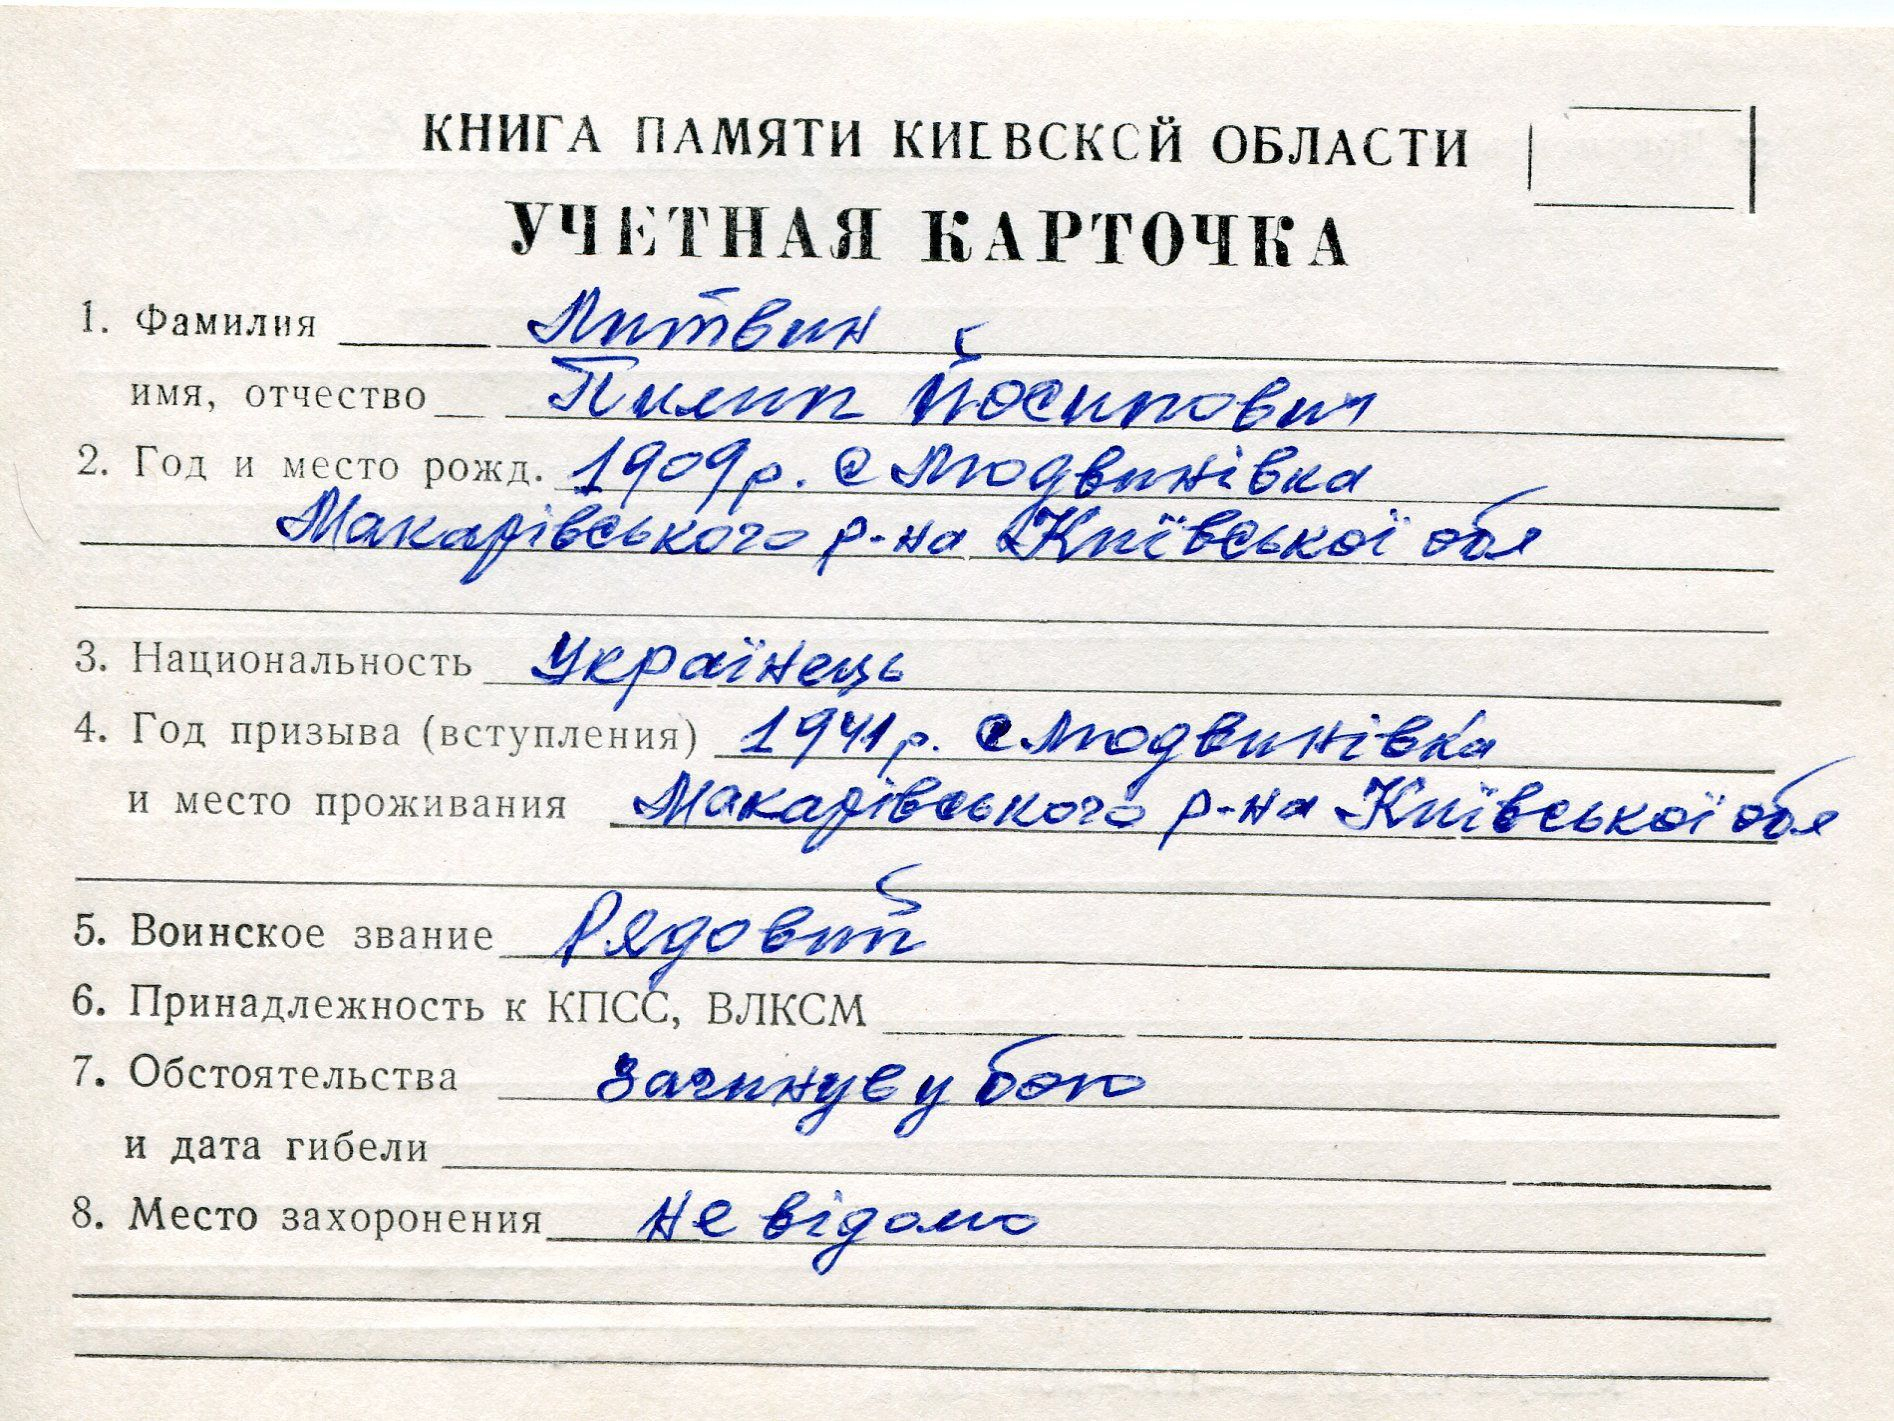 КНИГА ПАМЯТИ КИЕВСКОЙ ОБЛАСТИ
УЧЕТНАЯ КАРТОЧКА
1. Фамилия Литвин
имя, отчество Пилип Йосипович
2. Год и место рожд. 1909 р. с Людвинівка
Макарівського р-на Київської обл
3. Национальность Українець
4. Год призыва (вступления) 1941 р. с Людвинівка
и место проживания Макарівського р-на Київської обл
5. Воинское звание Рядовий
6. Принадлежность к КПСС, ВЛКСМ
7. Обстоятельства Загинув у бою
и дата гибели
8. Место захоронения не відомо